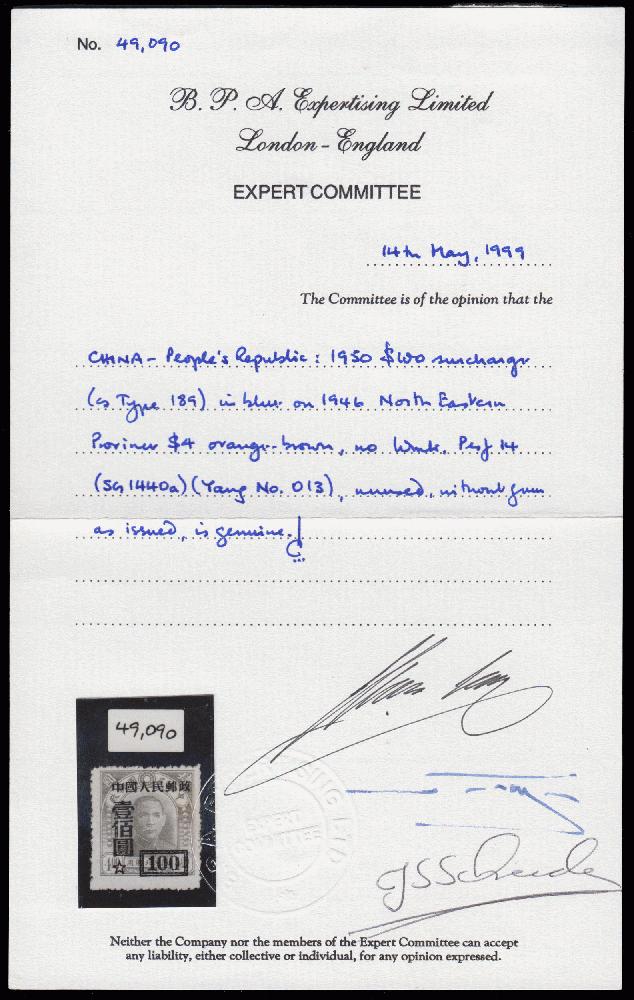 No. 49,090
B. P. A. Expertising Limited
London - England
EXPERT COMMITTEE
14th May, 1999
The Committee is of the opinion that the
CHINA - People's Republic: 1950 $100 surcharge
(as Type 189) in blue on 1946 North Eastern
Provinces $4 orange-brown, no Wmk. Perf 14
(SG 1440a) (Yang No. 013), unused, without gum
as issued, is genuine.
49,090
中國人民郵政
壹佰圓
100
EXPERT
COMMITTEE
Neither the Company nor the members of the Expert Committee can accept
any liability, either collective or individual, for any opinion expressed.